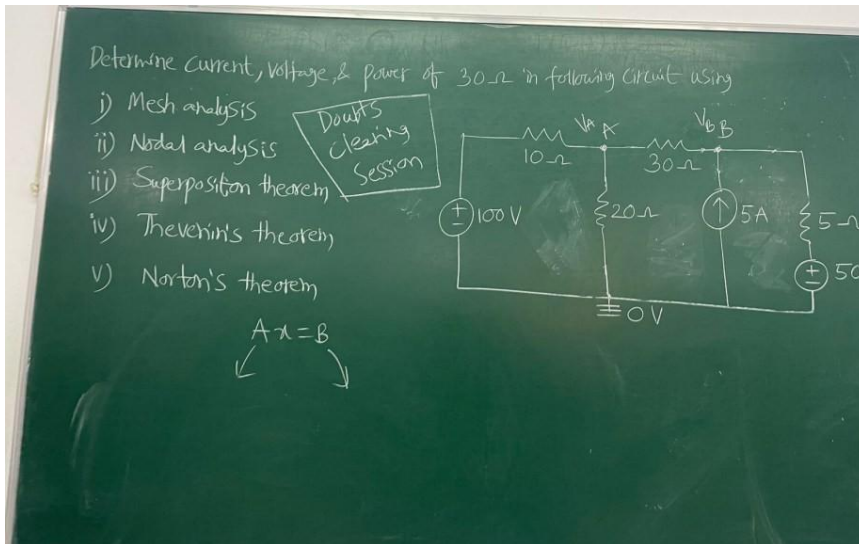 Determine current, voltage, & power of 30Ω in following circuit using
i) Mesh analysis
ii) Nodal analysis
iii) Superposition theorem
iv) Thevenin's theorem
v) Norton's theorem
Doubts
clearing
Session
Ax=B
VA A
VB B
10Ω
30Ω
100V
20Ω
5A
5Ω
50
0V